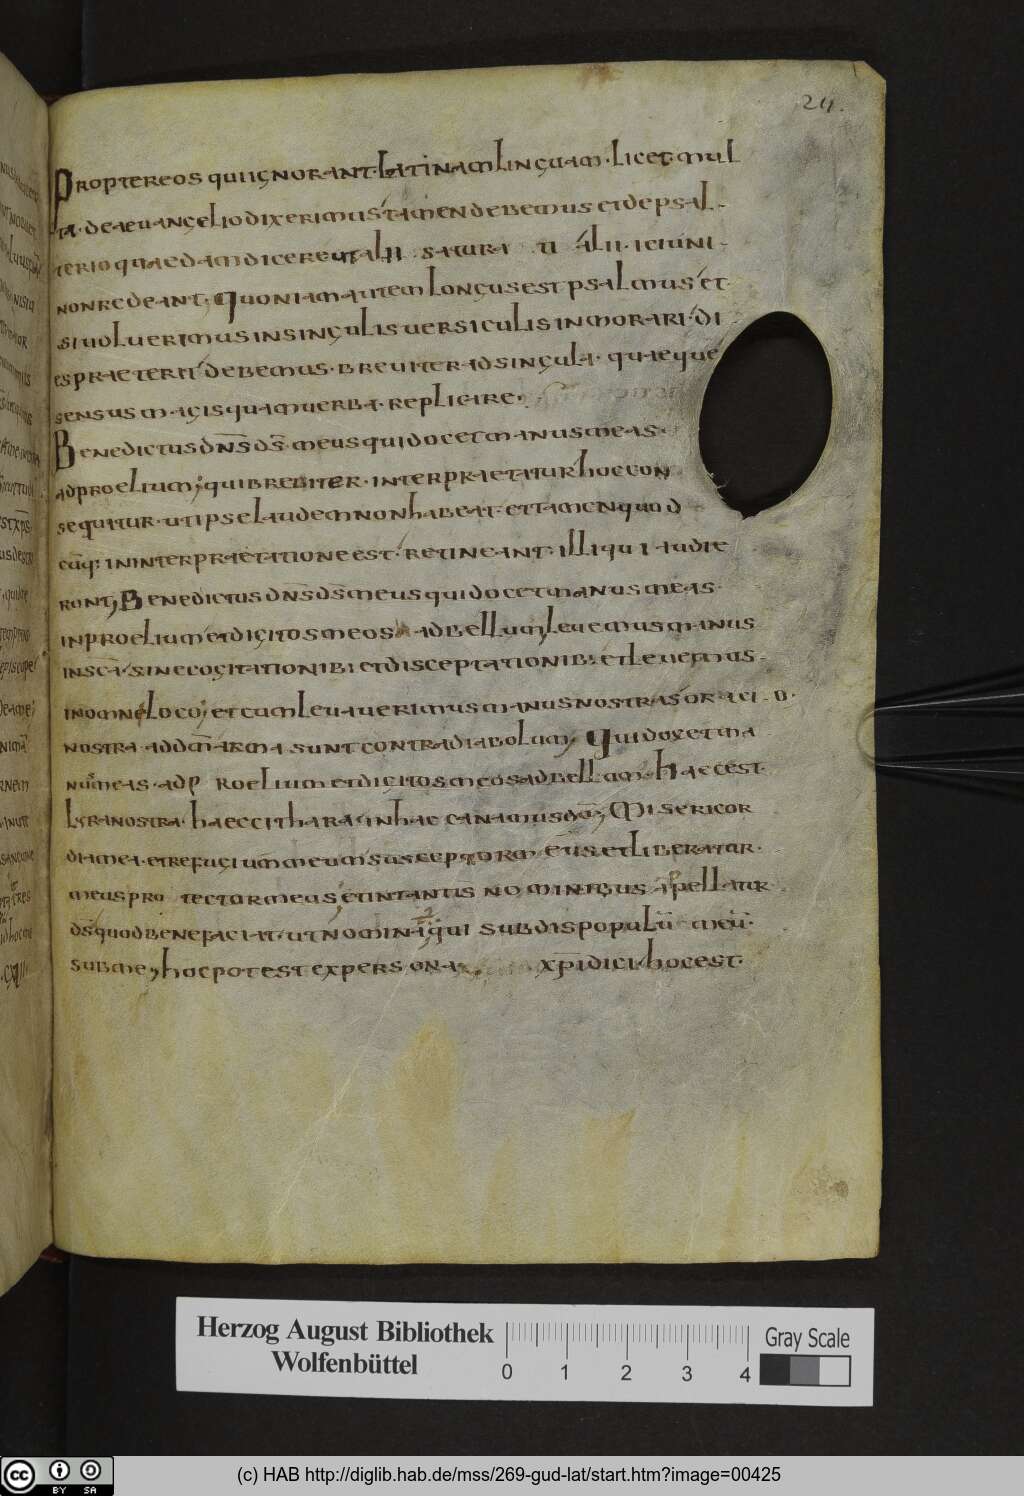 24.
PROPTEREOS QUI IGNORANT· LATINAM LINGUAM· LICET MUL
TA· DE AEUANGELIO DIXERIMUS TAMEN DEBEMUS ET DE PSAL-
TERIO QUAEDAM DICERE UT ALII SATURATI ALII· IEIUNI-
NON REDEANT; QUONIAM AUTEM LONGUS EST PSALMUS ET
SI UOLUERIMUS IN SINGULIS UERSICULIS INMORARI· DI
ES PRAETERIT DEBEMUS· BREUITER AD SINGULA· QUAEQUE
SENSUS MAGIS QUAM UERBA· REPLICARE·
BENEDICTUS DN̄S DS̄· MEUS QUI DOCET MANUS MEAS·
AD PROELIUM; QUI BREUITER· INTERPRAETATUR HOC CON
SEQUITUR· UT IPSE LAUDEM NON HABEAT· ET TAMEN QUOD
CŪQ: IN INTERPRAETATIONE EST· RETINEANT· ILLI QUI AUDIE
RUNT; BENEDICTUS DN̄S DS̄ MEUS QUI DOCET MANUS MEAS·
IN PROELIUM ET DIGITOS MEOS AD BELLUM; LEUEMUS MANUS
IN SC̄A· SINE COGITATIONIB: ET DISCEPTATIONIB: ET LEUEMUS-
IN OMNE LOCO; ET CUM LEUAUERIMUS MANUS NOSTRAS ORACIO·
NOSTRA· AD DM̄ ARMA SUNT CONTRA DIABOLUM; QUI DOCET MA
NUS MEAS· AD PROELIUM ET DIGITOS MEOS AD BELLUM· HAEC EST·
LYRA NOSTRA· HAEC CITHARA· IN HAC CANAMUS DŌ; MISERICOR
DIA MEA· ET REFUGIUM MEUM SUSCEPTOR M EUS ET LIBERATUR·
MEUS PROTECTOR MEUS; ET IN TANTIS NOMINIBUS APELLATUR
DS̄ QUOD BENEFACIAT· UT NOMINA; QUI SUBDIS POPULŪ MEŪ·
SUB ME; HOC POTEST EX PERSONA XP̄I DICI· HOC EST·
Herzog August Bibliothek
Wolfenbüttel
0 1 2 3 4
Gray Scale
CC BY SA
(c) HAB http://diglib.hab.de/mss/269-gud-lat/start.htm?image=00425